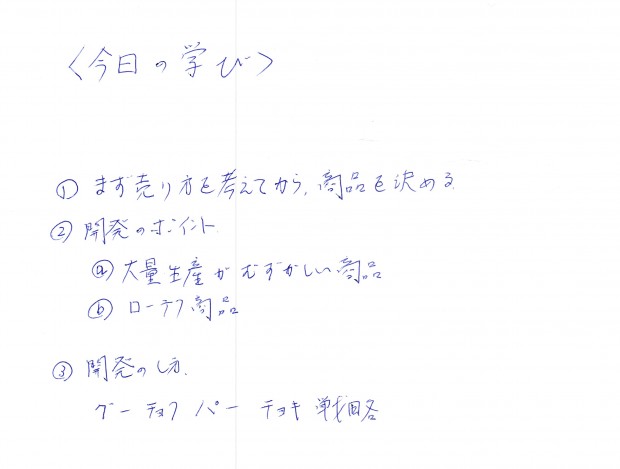 〈今日の学び〉
① まず売り方を考えてから、商品を決める.
② 開発のポイント
ⓐ 大量生産がむずかしい商品
ⓑ ローテク商品
③ 開発のし方.
グー パー チョキ 戦略